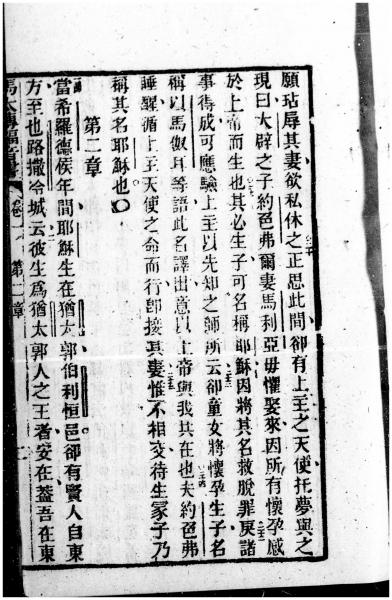 願玷辱其妻欲私休之正思此間卻有上主之天使托夢與之
現曰大辟之子約邑弗爾妻馬利亞毋懼娶來因所有懷孕感
於上帝而生也其必生子可名稱耶穌因將其名救脫罪戾諸
事得成可應驗上主以先知之師所云卻童女將懷孕生子名
稱以馬奴耳等語此名譯出意以上帝與我共在也夫約邑弗
睡醒循上主天使之命而行卽接其妻惟不相交待生冢子乃
稱其名耶穌也
第二章
當希羅德候年間耶穌生在猶太郭伯利恒邑卻有賢人自東
方至也路撒冷城云彼生爲猶太郭人之王者安在蓋吾在東
馬太傳福音書 卷一 第二章 二